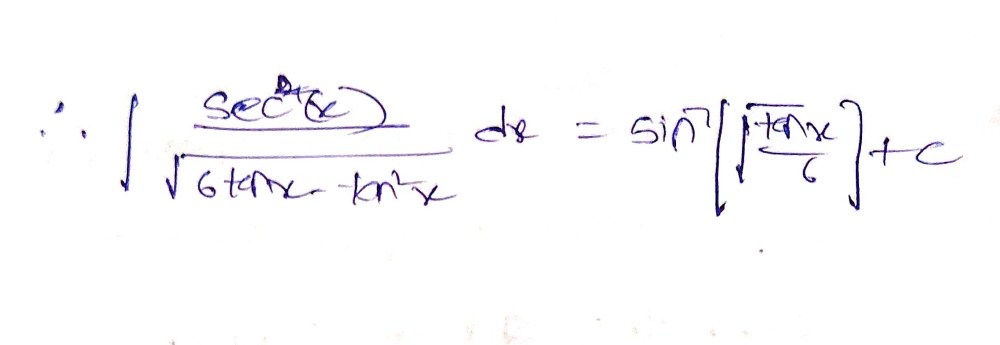 ∴ ∫ sec²(x) / √(6tanx - tan²x) dx = sin⁻¹[√(tanx/6)] + c